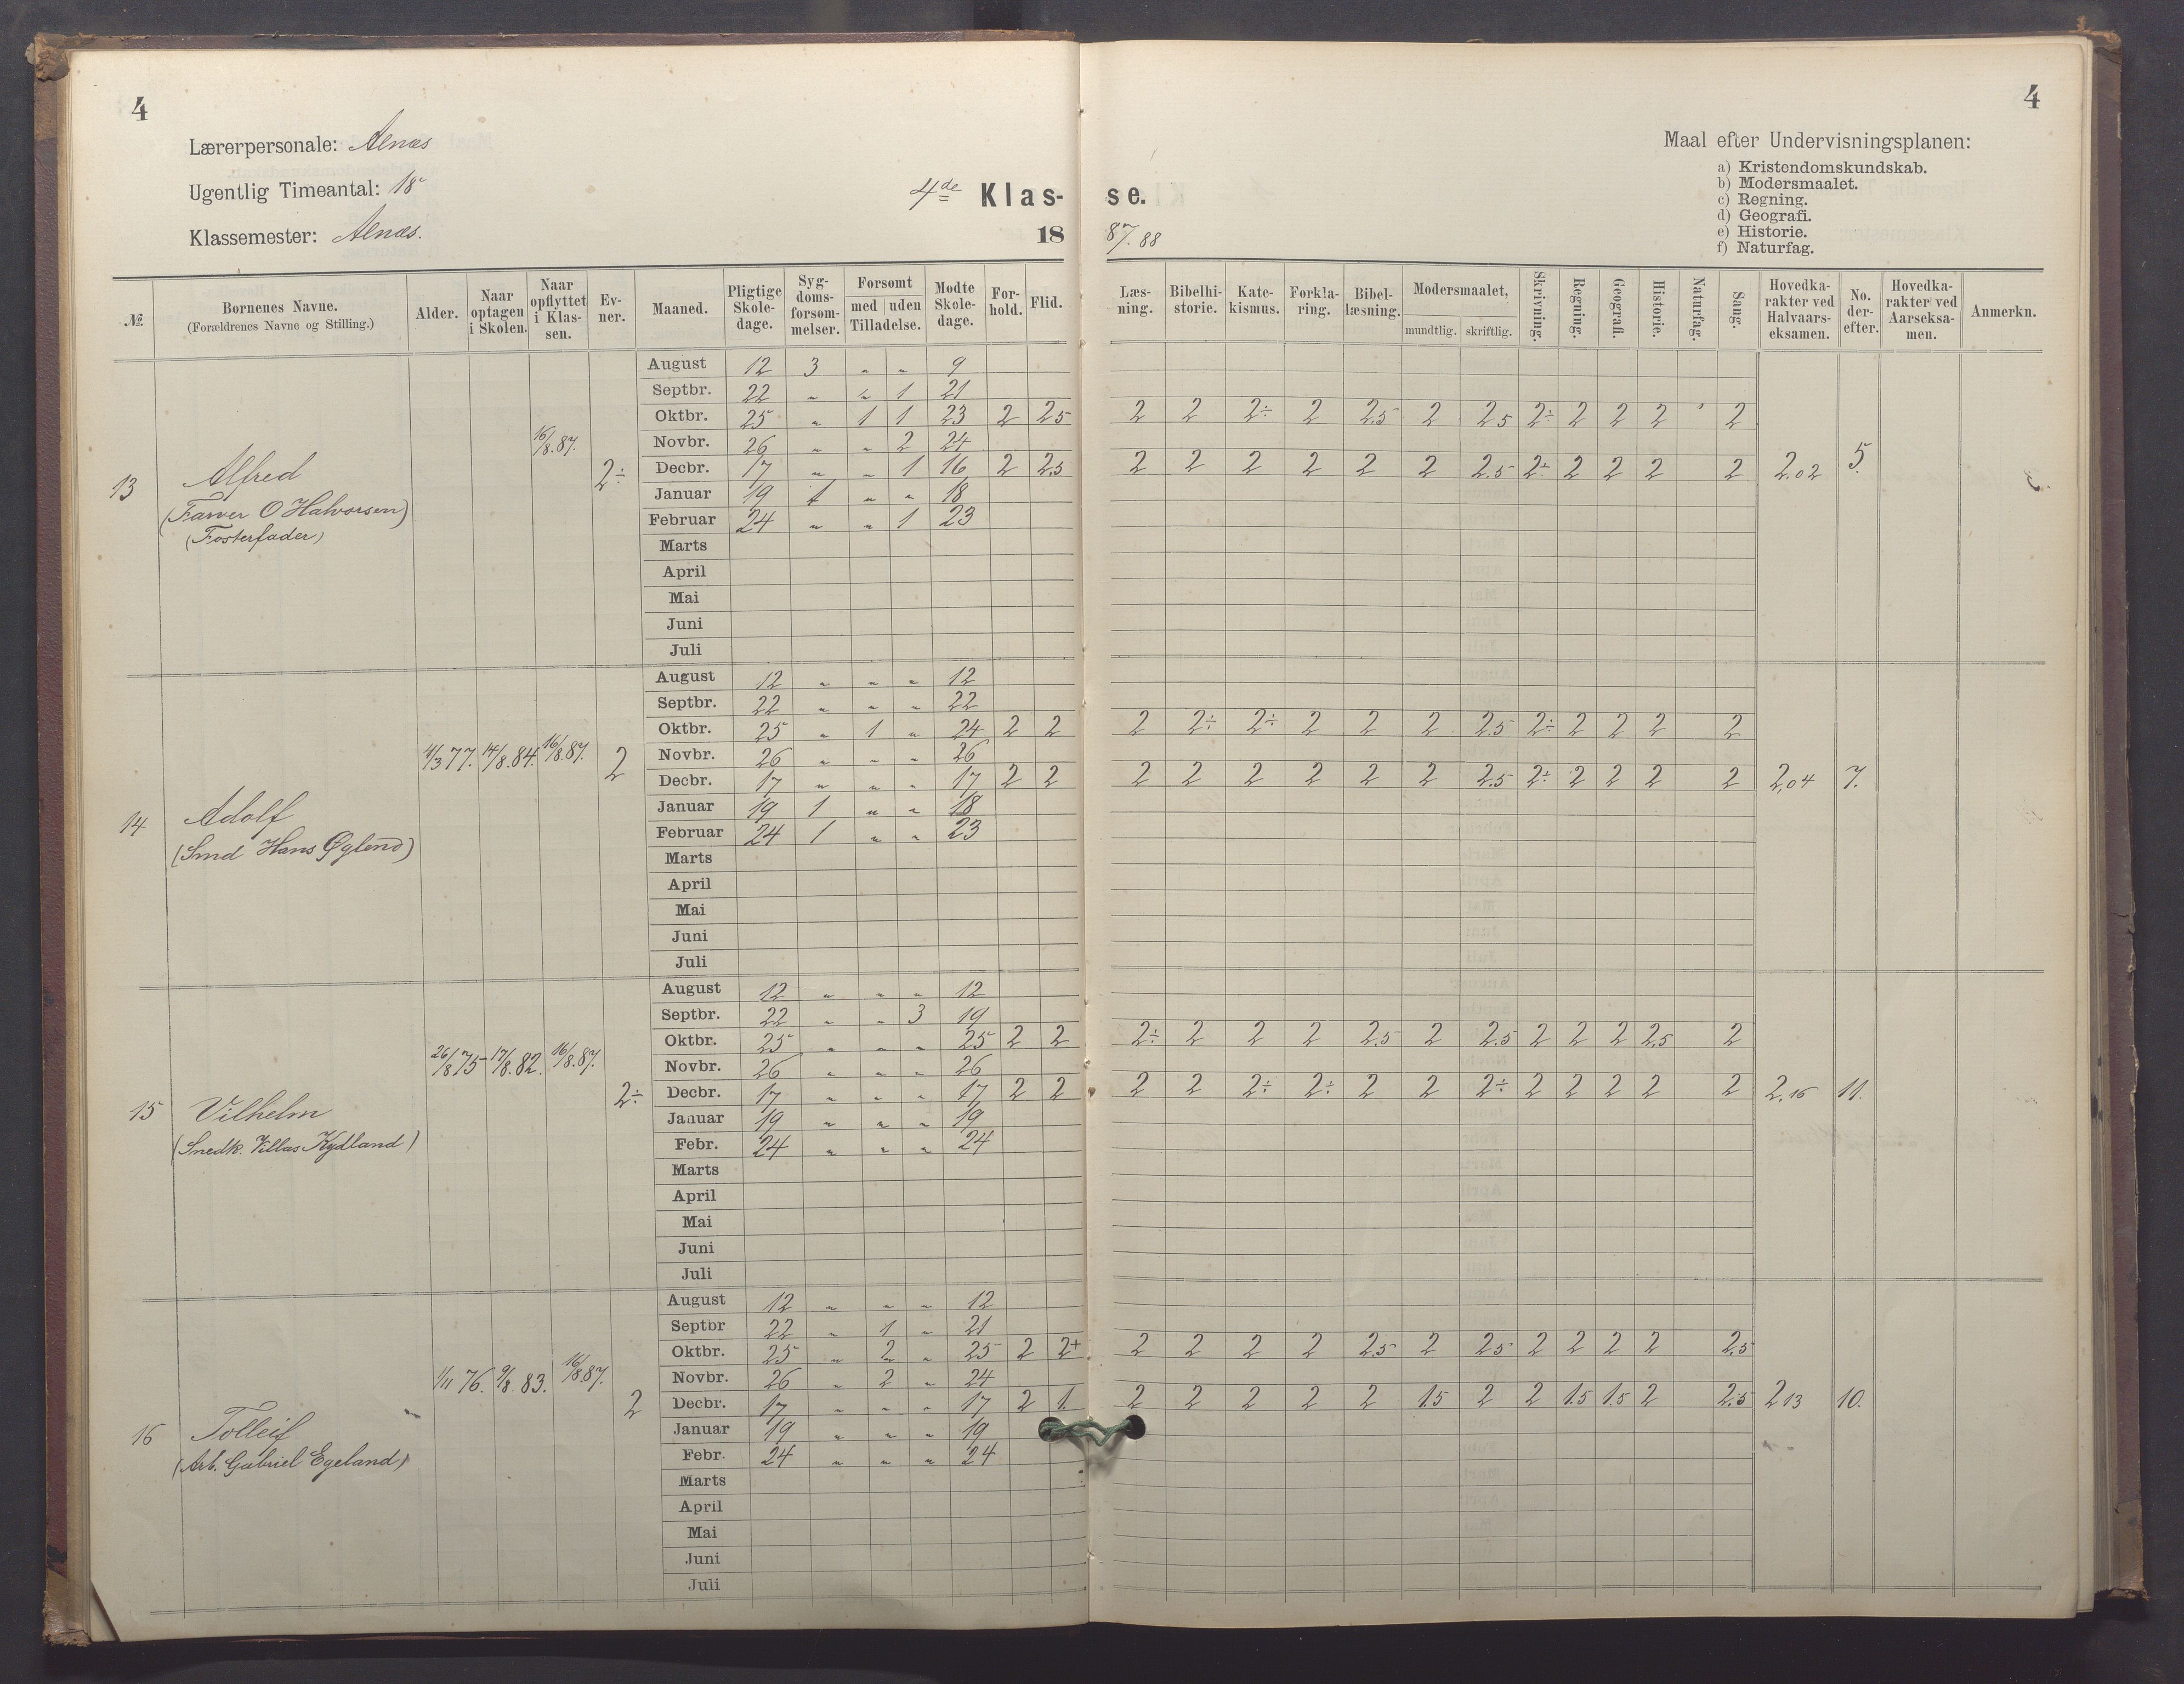 4
4
Lærerpersonale: Aenæs
Ugentlig Timeantal: 18
Klassemester: Aenæs.
4de Klas-se.
18 87/88
Maal efter Undervisningsplanen:
a) Kristendomskundskab.
b) Modersmaalet.
c) Regning.
d) Geografi.
e) Historie.
f) Naturfag.
№. Børnenes Navne. (Forældrenes Navne og Stilling.) Alder. Naar optagen i Skolen. Naar opflyttet i Klassen. Evner. Maaned. Pligtige Skoledage. Sygdomsforsømmelser. Forsømt med uden Tilladelse. Mødte Skoledage. Forhold. Flid. Læsning. Bibelhistorie. Katekismus. Forklaring. Bibellæsning. Modersmaalet, mundtlig. skriftlig. Skrivning. Regning. Geografi. Historie. Naturfag. Sang. Hovedkarakter ved Halvaarseksamen. No. derefter. Hovedkarakter ved Aarseksamen. Anmerkn.
13 Alfred
(Farver O Halvorsen)
(Fosterfader)
16/8.87. 2÷
August 12 3 „ „ 9
Septbr. 22 „ „ 1 21
Oktbr. 25 „ 1 1 23 2 2.5 2 2 2÷ 2 2.5 2 2.5 2÷ 2 2 2 2
Novbr. 26 „ „ 2 24
Decbr. 17 „ „ 1 16 2 2.5 2 2 2 2 2 2 2.5 2÷ 2 2 2 2 2.02 5.
Januar 19 1 „ „ 18
Februar 24 „ „ 1 23
Marts
April
Mai
Juni
Juli
14 Adolf
(Smd Hans Øglend)
4/3 77. 14/8.84. 16/8.87. 2
August 12 „ „ „ 12
Septbr. 22 „ „ „ 22
Oktbr. 25 „ 1 „ 24 2 2 2 2÷ 2÷ 2 2 2 2.5 2÷ 2 2 2 2
Novbr. 26 „ „ „ 26
Decbr. 17 „ „ „ 17 2 2 2 2 2 2 2 2 2.5 2÷ 2 2 2 2 2,04 7.
Januar 19 1 „ „ 18
Februar 24 1 „ „ 23
Marts
April
Mai
Juni
Juli
15 Vilhelm
(Snedk. Villas Kydland)
26/8 75 17/8.82. 16/8.87. 2÷
August 12 „ „ „ 12
Septbr. 22 „ „ 3 19
Oktbr. 25 „ „ „ 25 2 2 2÷ 2 2 2 2.5 2 2.5 2 2 2 2.5 2
Novbr. 26 „ „ „ 26
Decbr. 17 „ „ „ 17 2 2 2 2 2÷ 2÷ 2 2 2÷ 2 2 2 2 2 2,16 11.
Januar 19 „ „ „ 19
Febr. 24 „ „ „ 24
Marts
April
Mai
Juni
Juli
16 Tolleif
(Arb. Gabriel Egeland)
1/11 76. 9/8.83. 16/8.87. 2
August 12 „ „ „ 12
Septbr 22 „ 1 „ 21
Oktbr. 25 „ 2 „ 25 2 2+ 2 2 2 2 2.5 2 2.5 2 2 2 2 2.5
Novbr. 26 „ 2 „ 24
Decbr. 17 „ „ „ 17 2 1. 2 2 2 2 2 1.5 2 2 1.5 1.5 2 2.5 2 13 10.
Januar 19 „ „ „ 19
Febr. 24 „ „ „ 24
Marts
April
Mai
Juni
Juli